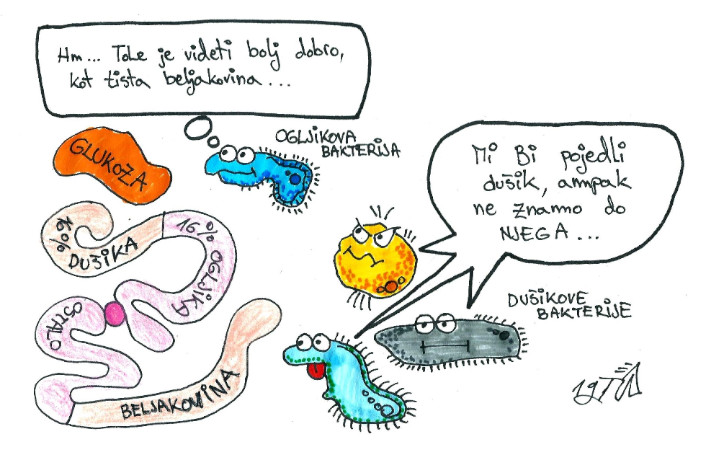 Hm... Tole je videti bolj dobro,
kot tista beljakovina...
GLUKOZA
OGLJIKOVA
BAKTERIJA
Mi Bi pojedli
dušik, ampak
ne znamo do
NJEGA...
16% DUŠIKA
16% OGLJIKA
OSTALO
BELJAKOVINA
DUŠIKOVE
BAKTERIJE